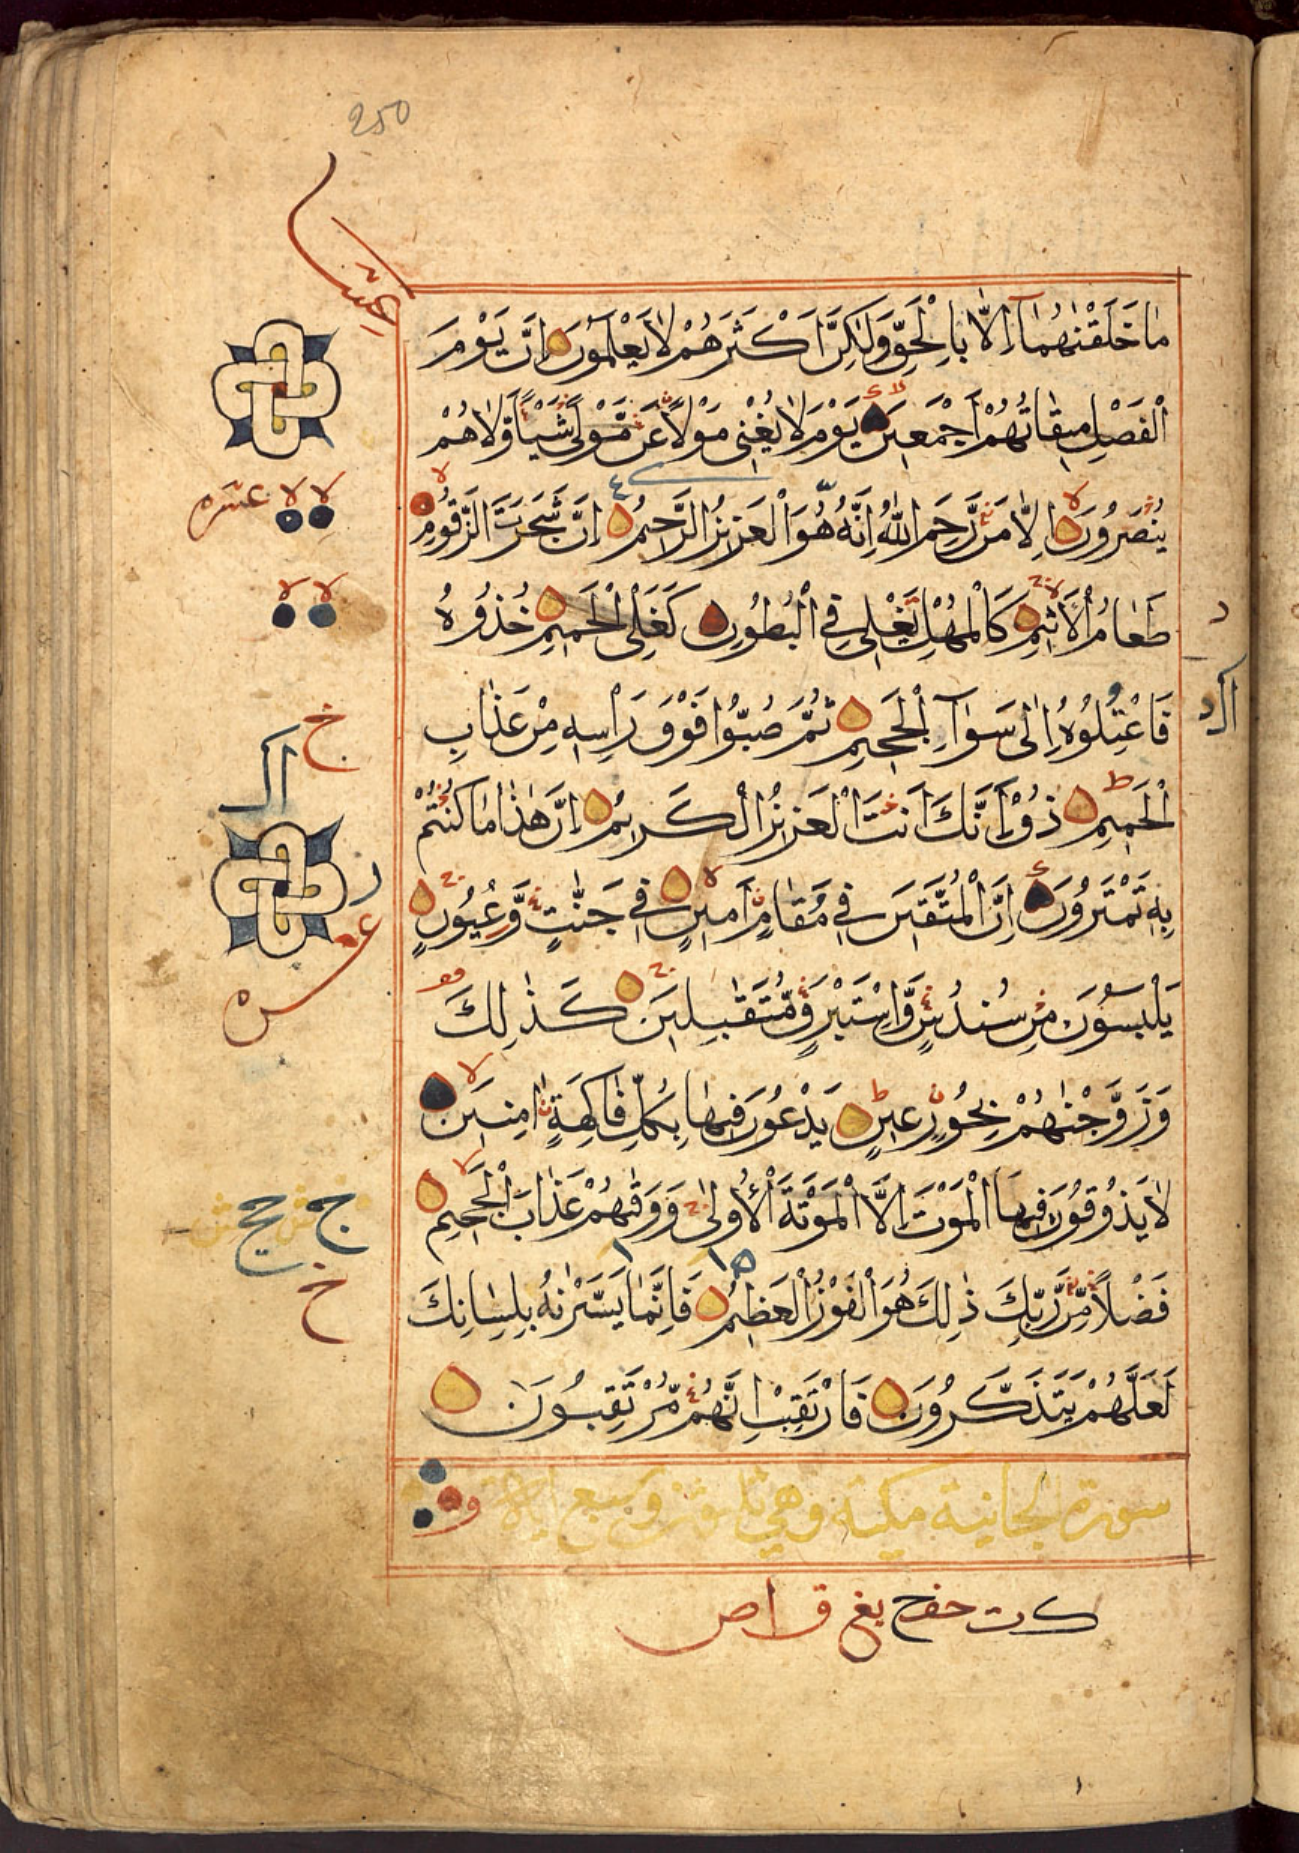 250
مَا خَلَقْنٰهُمَآ اِلَّا بِالْحَقِّ وَلٰكِنَّ اَكْثَرَهُمْ لَا يَعْلَمُوْنَ اِنَّ يَوْمَ
الْفَصْلِ مِيْقَاتُهُمْ اَجْمَعِيْنَ يَوْمَ لَا يُغْنِيْ مَوْلًا عَنْ مَّوْلًى شَيْـًٔا وَّلَا هُمْ
يُنْصَرُوْنَ اِلَّا مَنْ رَّحِمَ اللّٰهُ اِنَّهٗ هُوَ الْعَزِيْزُ الرَّحِيْمُ اِنَّ شَجَرَتَ الزَّقُّوْمِ
طَعَامُ الْاَثِيْمِ كَالْمُهْلِ يَغْلِيْ فِي الْبُطُوْنِ كَغَلْيِ الْحَمِيْمِ خُذُوْهُ
فَاعْتِلُوْهُ اِلٰى سَوَآءِ الْجَحِيْمِ ثُمَّ صُبُّوْا فَوْقَ رَاْسِهٖ مِنْ عَذَابِ
الْحَمِيْمِ ذُقْ اِنَّكَ اَنْتَ الْعَزِيْزُ الْكَرِيْمُ اِنَّ هٰذَا مَا كُنْتُمْ
بِهٖ تَمْتَرُوْنَ اِنَّ الْمُتَّقِيْنَ فِيْ مَقَامٍ اَمِيْنٍ فِيْ جَنّٰتٍ وَّعُيُوْنٍ
يَلْبَسُوْنَ مِنْ سُنْدُسٍ وَّاِسْتَبْرَقٍ مُّتَقٰبِلِيْنَ كَذٰلِكَ
وَزَوَّجْنٰهُمْ بِحُوْرٍ عِيْنٍ يَدْعُوْنَ فِيْهَا بِكُلِّ فَاكِهَةٍ اٰمِنِيْنَ
لَا يَذُوْقُوْنَ فِيْهَا الْمَوْتَ اِلَّا الْمَوْتَةَ الْاُوْلٰى وَوَقٰهُمْ عَذَابَ الْجَحِيْمِ
فَضْلًا مِّنْ رَّبِّكَ ذٰلِكَ هُوَ الْفَوْزُ الْعَظِيْمُ فَاِنَّمَا يَسَّرْنٰهُ بِلِسَانِكَ
لَعَلَّهُمْ يَتَذَكَّرُوْنَ فَارْتَقِبْ اِنَّهُمْ مُّرْتَقِبُوْنَ
سورة الجاثية مكية وهي ثلثون وسبع اية